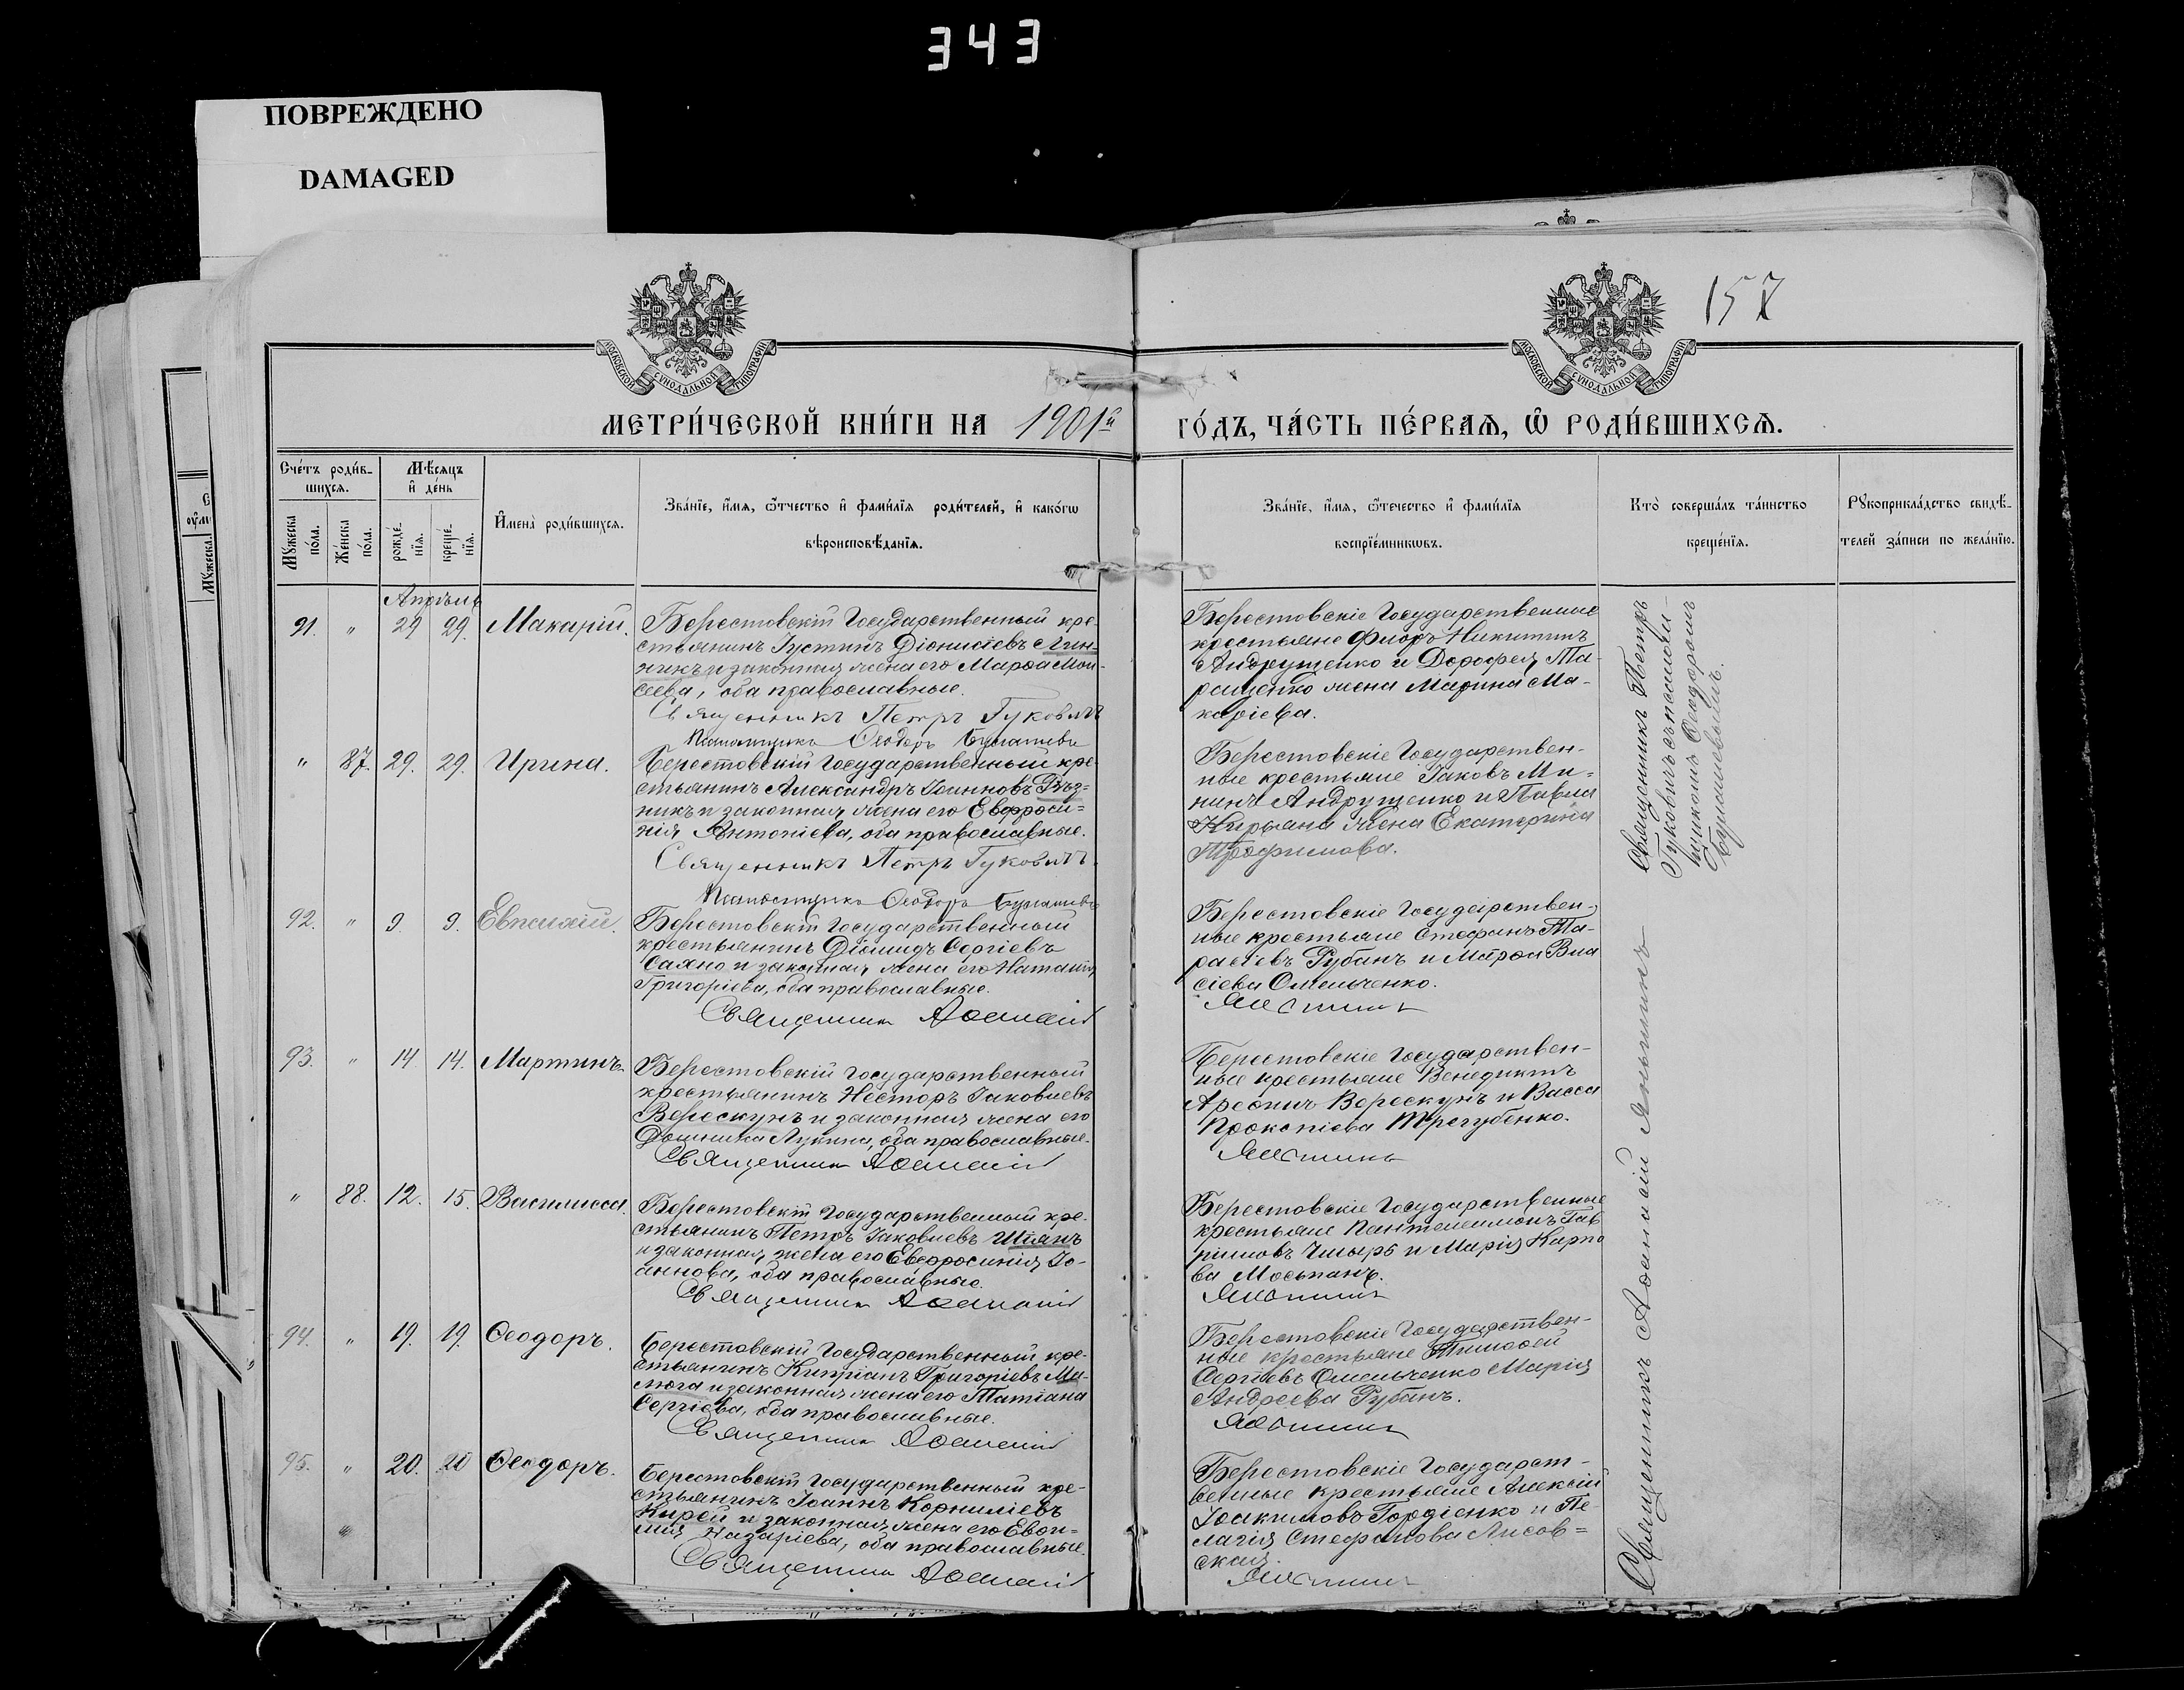 343
ПОВРЕЖДЕНО
DAMAGED
157
МОСКОВСКОЙ СѴНОДАЛЬНОЙ ТИПОГРАФІИ
МОСКОВСКОЙ СѴНОДАЛЬНОЙ ТИПОГРАФІИ
МЕТРИ́ЧЕСКОЙ КНИ́ГИ НА 1901й ГО́ДЪ, ЧА́СТЬ ПЕ́РВАѦ, Ѡ҆ РОДИ́ВШИХСѦ.
Сче́тъ роди́в-
шихсѧ.
Мѣ́сяцъ
и҆ де́нь
Мꙋ́жеска
по́ла.
Же́нска
по́ла.
рожде́-
нїѧ.
креще́-
нїѧ.
И҆мена̀ роди́вшихсѧ.
Зва́нїе, и҆́мѧ, ѻ҆́тчество и҆ фами́лїѧ роди́телей, и҆ како́гѡ
вѣроисповѣ́данїѧ.
Зва́нїе, и҆́мѧ, ѻ҆те́чество и҆ фами́лїѧ
воспрїе́мникѡвъ.
Кто̀ соверша́лъ та́инство
креще́нїѧ.
Рꙋкоприкла́дство свидѣ́-
телей за́писи по жела́нїю.
Апрѣль
91. " 29 29. Макарій.
Берестовскій Государственный кре-
стьянинъ Густинъ Діонисіевъ Лин-
никъ и законная жена его Марѳа Мои-
сеева, оба православные.
Священникъ Петръ Гуковичъ
Псаломщикъ Ѳеодоръ
Берестовскіе Государственные
крестьяне Флоръ Никитинъ
Андрущенко и Дорофея Та-
ращенко жена Марина Ма-
каріева.
Священникъ Петръ
Гуковичъ съ псалом-
щикомъ Ѳеодоромъ
" 87. 29. 29. Ирина.
Берестовскій Государственный кре-
стьянинъ Александръ Іоанновъ Рѣз-
никъ и законная жена его Евфроси-
нія Антоніева, оба православные.
Священникъ Петръ Гуковичъ.
Псаломщикъ Ѳеодоръ
Берестовскіе Государствен-
ные крестьяне Іаковъ Ми-
нинъ Андрущенко и Павла
Кирьяна жена Екатерина
Трофимова.
92. " 9. 9. Евпсихій.
Берестовскій Государственный
крестьянинъ Діомидъ Сергіевъ
Саяно и законная жена его Наталія
Григоріева, оба православные.
Священникъ Аѳанасій
Берестовскіе Государствен-
ные крестьяне Стефанъ Та-
расіевъ Рубанъ и Марѳа Вла
сіева Омельченко.
Яньшинъ
93. " 14 14. Мартинъ.
Берестовскій Государственный
крестьянинъ Несторъ Іаковлевъ
Верескунъ и законная жена его
Домника Лукина, оба православные.
Священникъ Аѳанасій
Берестовскіе Государствен-
ные крестьяне Венедиктъ
Арефинъ Верескунъ и Васса
Прокопіева Трегубенко.
Яньшинъ
" 88. 12. 15. Василисса.
Берестовскій Государственный кре-
стьянинъ Петръ Іаковлевъ Шіянъ
и законная жена его Евфросинія Іо-
аннова, оба православные.
Священникъ Аѳанасій
Берестовскіе Государственные
крестьяне Пантелеимонъ Гав
риловъ Чмыръ и Марія Карпо
ва Мосьпанъ.
Яньшинъ
Священникъ Аѳанасій Яньшинъ
94. " 19. 19. Ѳеодоръ.
Берестовскій Государственный кре-
стьянинъ Кипріанъ Григоріевъ Ми-
люга и законная жена его Татіана
Сергіева, оба православные.
Священникъ Аѳанасій
Берестовскіе Государствен-
ные крестьяне Тимоѳей
Сергіевъ Омельченко Марія
Андреева Рубанъ.
Яньшинъ
95. " 20. 20 Ѳеодоръ.
Берестовскій Государственный кре-
стьянинъ Іоаннъ Корниліевъ
Кирей и законная жена его Евѳи-
мія Назаріева, оба православные.
Священникъ Аѳанасій
Берестовскіе Государст-
венные крестьяне Алексій
Іоакимовъ Гордіенко и Пе-
лагія Стефанова Лисов-
ская.
Яньшинъ